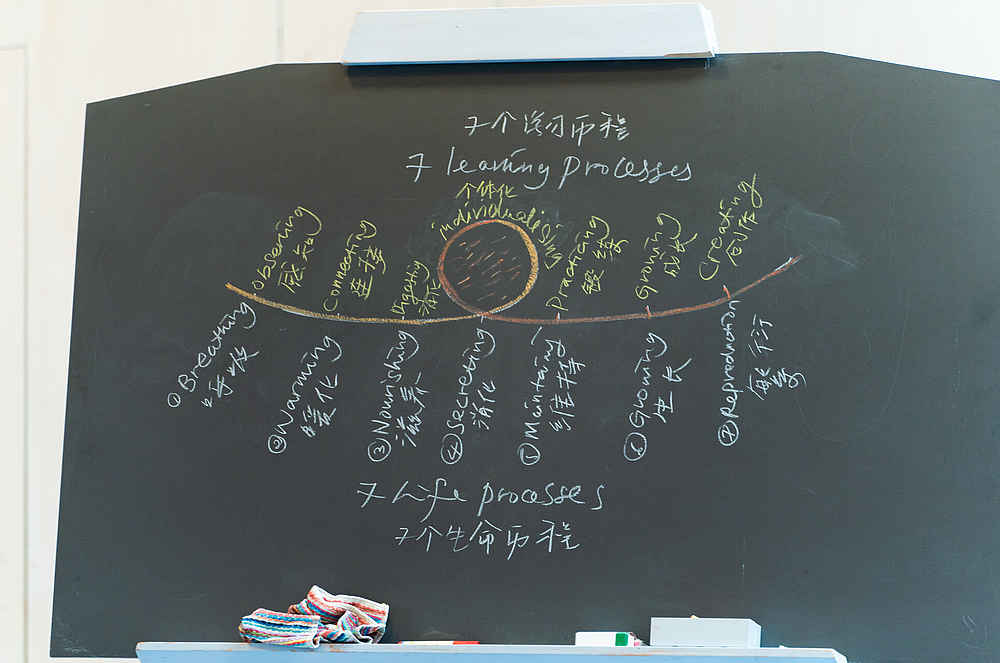 7个学习历程
7 learning processes
个体化
individualising
Observing
感知
Connecting
连接
Digesting
消化
Practicing
锻练
Growing
成长
Creating
创造
①Breathing
呼吸
②Warming
暖化
③Nourishing
滋养
④Secreting
消化
Maintaining
维持
⑥Growing
生长
⑦Reproduction
繁衍
7 Life processes
7个生命历程